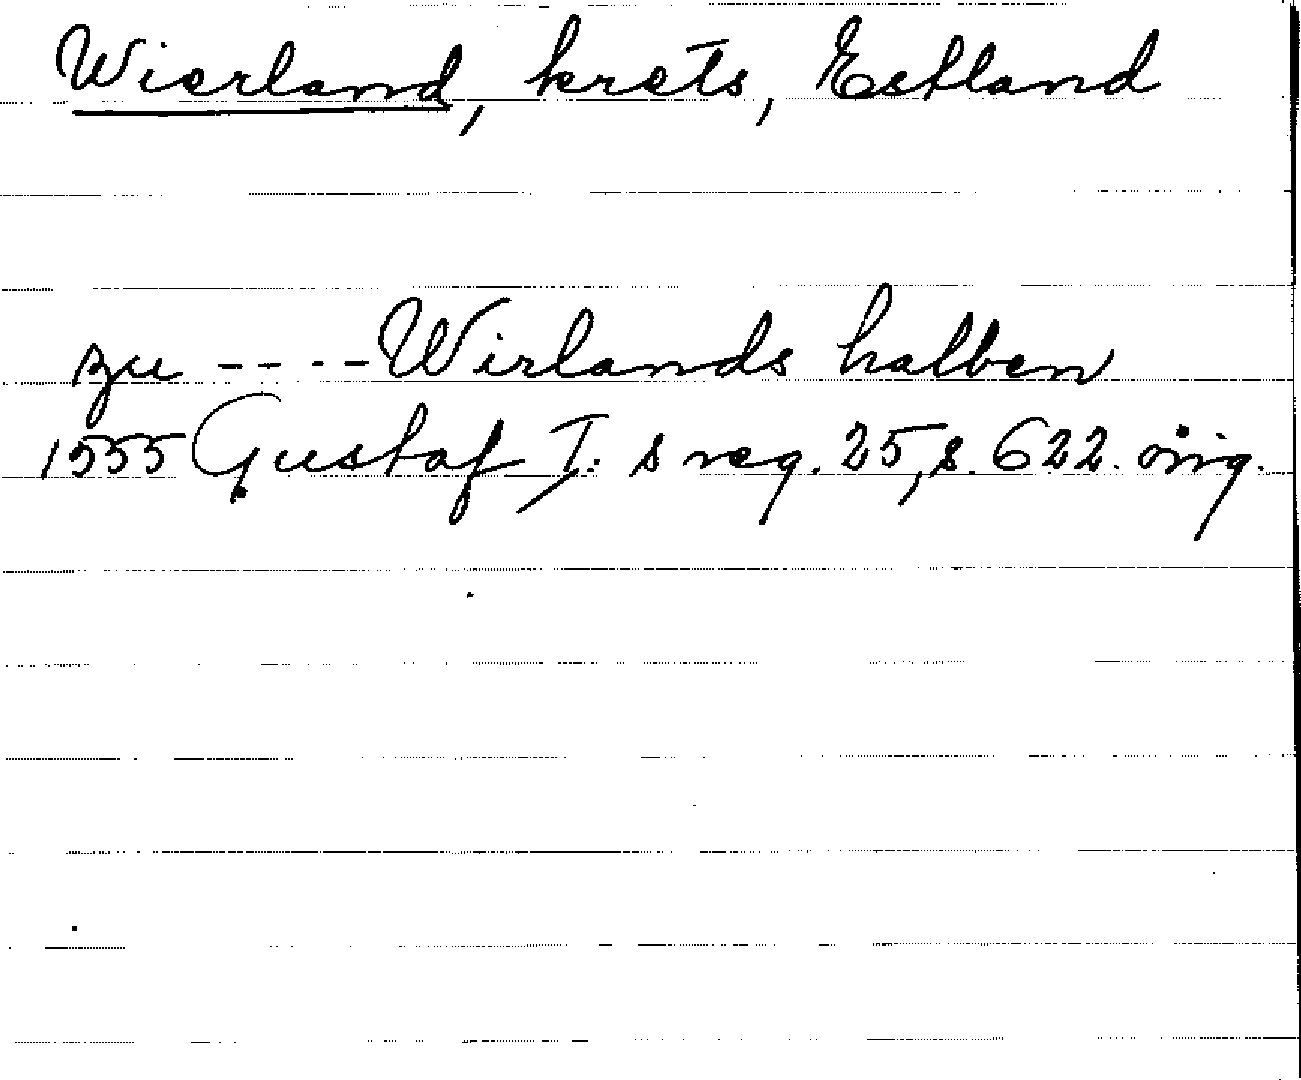 Wierland, krets, Estland
zu ---- Wirlands halben
1555 Gustaf I:s reg. 25, s. 622. orig.